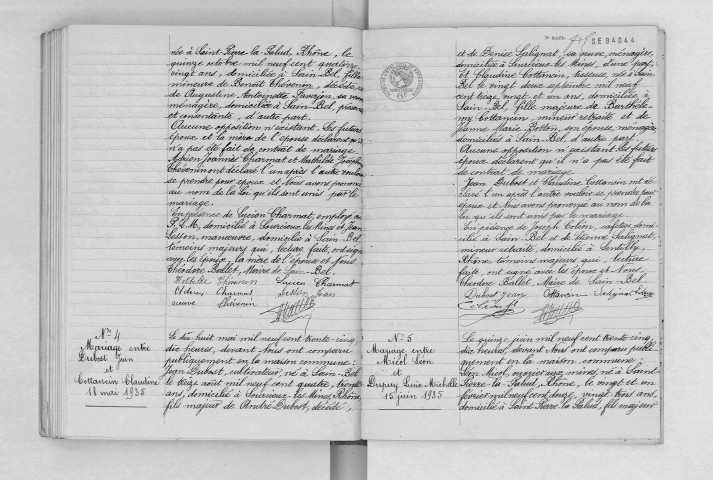 née à Saint-Pierre-la-Palud, Rhône, le
quinze octobre mil neuf cent quatorze
vingt ans, domiciliée à Sain-Bel, fille
mineure de Benoît Thévenon, décédé, et
de Augustine Antoinette
ménagère, domiciliée à Sain-Bel, présente
et consentante, d'autre part.
Aucune opposition n'existant. Les futurs
époux et la mère de l'épouse déclarent qu'il
n'a pas été fait de contrat de mariage.
Adrien Joannès Charmat et Mathilde Joséphine
Thévenin ont déclaré l'un après l'autre vouloir
se prendre pour époux et Nous avons prononcé
au nom de la loi qu'ils sont unis par le
mariage.
En présence de Lucien Charmat, employé au
P.L.M, domicilié à Sourcieux les Mines et Jean
Sesson, manœuvre, domicilié à Sain Bel
témoins majeurs qui, lecture faite, ont signé
avec les époux, la mère de l'épouse et Nous
Théodore Ballet, Maire de Sain-Bel.
Mathilde Thévenin Lucien Charmat
Charmat Sesson Jean
veuve Thévenin
N° 4
Mariage entre
Dubost Jean
et
Cottancin Claudine
18 mai 1935
Le dix-huit mai mil neuf cent trente-cinq
dix heures, devant Nous ont comparu
publiquement en la maison commune :
Jean Dubost, cultivateur, né à Sain-Bel
le treize août mil neuf cent quatre, trente
ans, domicilié à Sourcieux-les-Mines, Rhône
fils majeur de André Dubost, décédé,
SE94044
et de Denise Salignat, sa veuve, ménagère,
domiciliée à Sourcieux les Mines, d'une part,
et Claudine Cottancin, tisseuse, née à Sain
Bel le vingt deux septembre mil neuf
cent treize, vingt et un ans, domiciliée à
Sain-Bel, fille majeure de Barthéle-
my Cottancin, mineur retraité et de
Jeanne Marie Botton, son épouse, ménagère
domiciliés à Sain Bel, d'autre part.
Aucune opposition n'existant. Les futurs
époux déclarent qu'il n'a pas été fait
de contrat de mariage
Jean Dubost et Claudine Cottancin ont dé-
claré l'un après l'autre vouloir se prendre pour
époux et Nous avons prononcé au nom de la
loi qu'ils sont unis par le mariage.
En présence de Joseph, cafetier, domi-
cilié à Sain Bel et de Etienne Salignat,
mineur retraité, domicilié à Sentilly
Rhône, témoins majeurs qui, lecture
faite, ont signé avec les époux et Nous
Théodore Ballet, Maire de Sain-Bel
Dubost Jean Cottancin
N° 5
Mariage entre
Micol Léon
et
Dupuy Lucie Michelle
15 juin 1935
Le quinze juin mil neuf cent trente cinq
dix heures, devant Nous ont comparu publi-
quement en la maison commune :
Léon Micol, aux mines, né à Saint-
Pierre-la-Palud, Rhône, le vingt et un
février mil neuf cent douze, vingt trois ans,
domicilié à Saint-Pierre la Palud, fils majeur